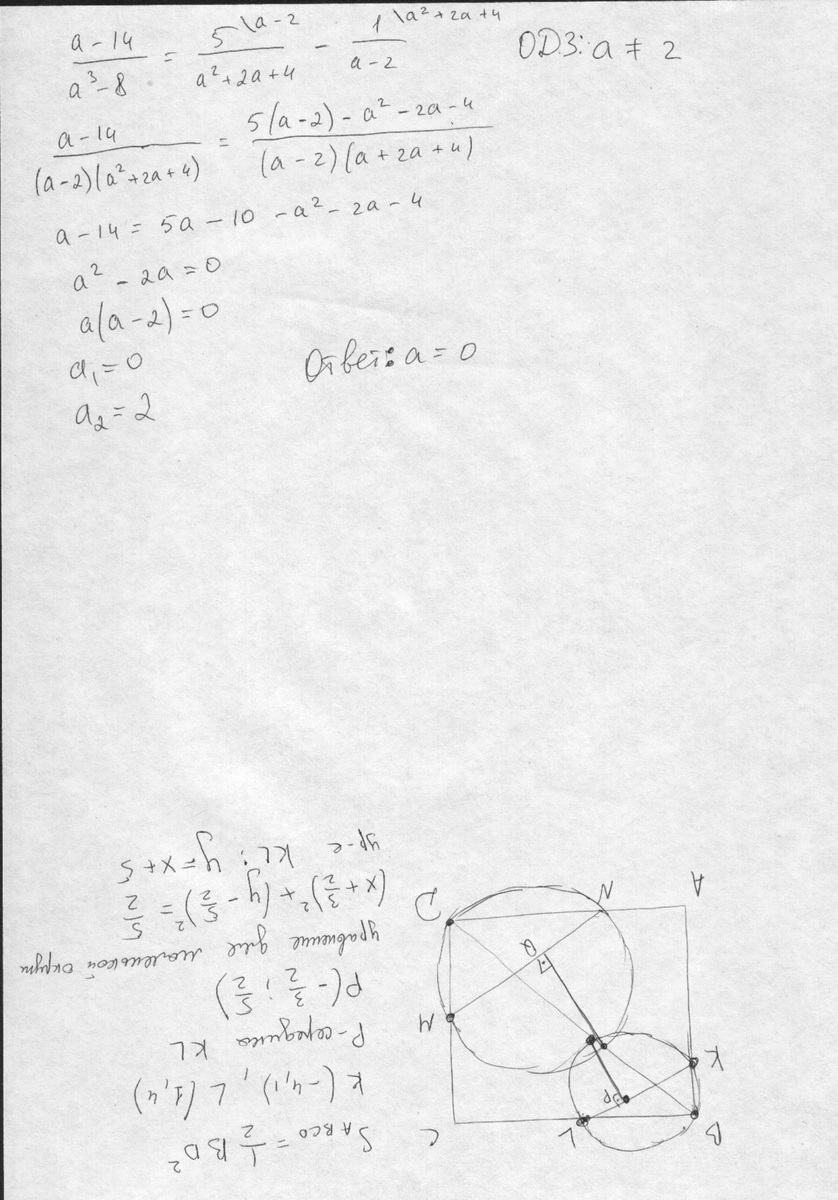 (a − 14)/(a³ − 8) = 5\a−2/(a² + 2a + 4) − 1\a²+2a+4/(a − 2)
ОДЗ: a ≠ 2
(a − 14)/((a−2)(a²+2a+4)) = (5(a−2) − a² − 2a − 4)/((a−2)(a+2a+4))
a − 14 = 5a − 10 − a² − 2a − 4
a² − 2a = 0
a(a−2) = 0
a₁ = 0
a₂ = 2
Ответ: a = 0
S ABCD = 1/2 BD²
K(−4,1), L(1,4)
P-середина KL
P(−3/2; 5/2)
уравнение для маленькой окруж
(x + 3/2)² + (y − 5/2)² = 5/2
ур-е KL: y = x + 5
B
L
C
K
P
M
Q
A
N
D